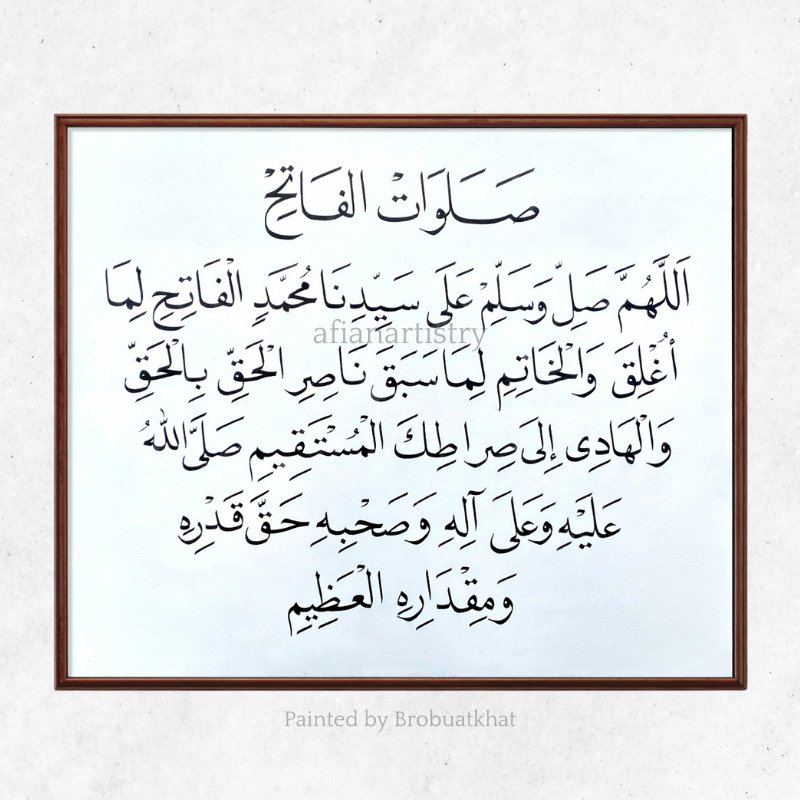 صَلَوَاتْ الفَاتِحْ
اَللّٰهُمَّ صَلِّ وَسَلِّمْ عَلَى سَيِّدِنَا مُحَمَّدٍ الْفَاتِحِ لِمَا
afianartistry
أُغْلِقَ وَالْخَاتِمِ لِمَا سَبَقَ نَاصِرِ الْحَقِّ بِالْحَقِّ
وَالْهَادِى إِلَى صِرَاطِكَ الْمُسْتَقِيمِ صَلَّى اللهُ
عَلَيْهِ وَعَلَى آلِهِ وَصَحْبِهِ حَقَّ قَدْرِهِ
وَمِقْدَارِهِ الْعَظِيمِ
Painted by Brobuatkhat